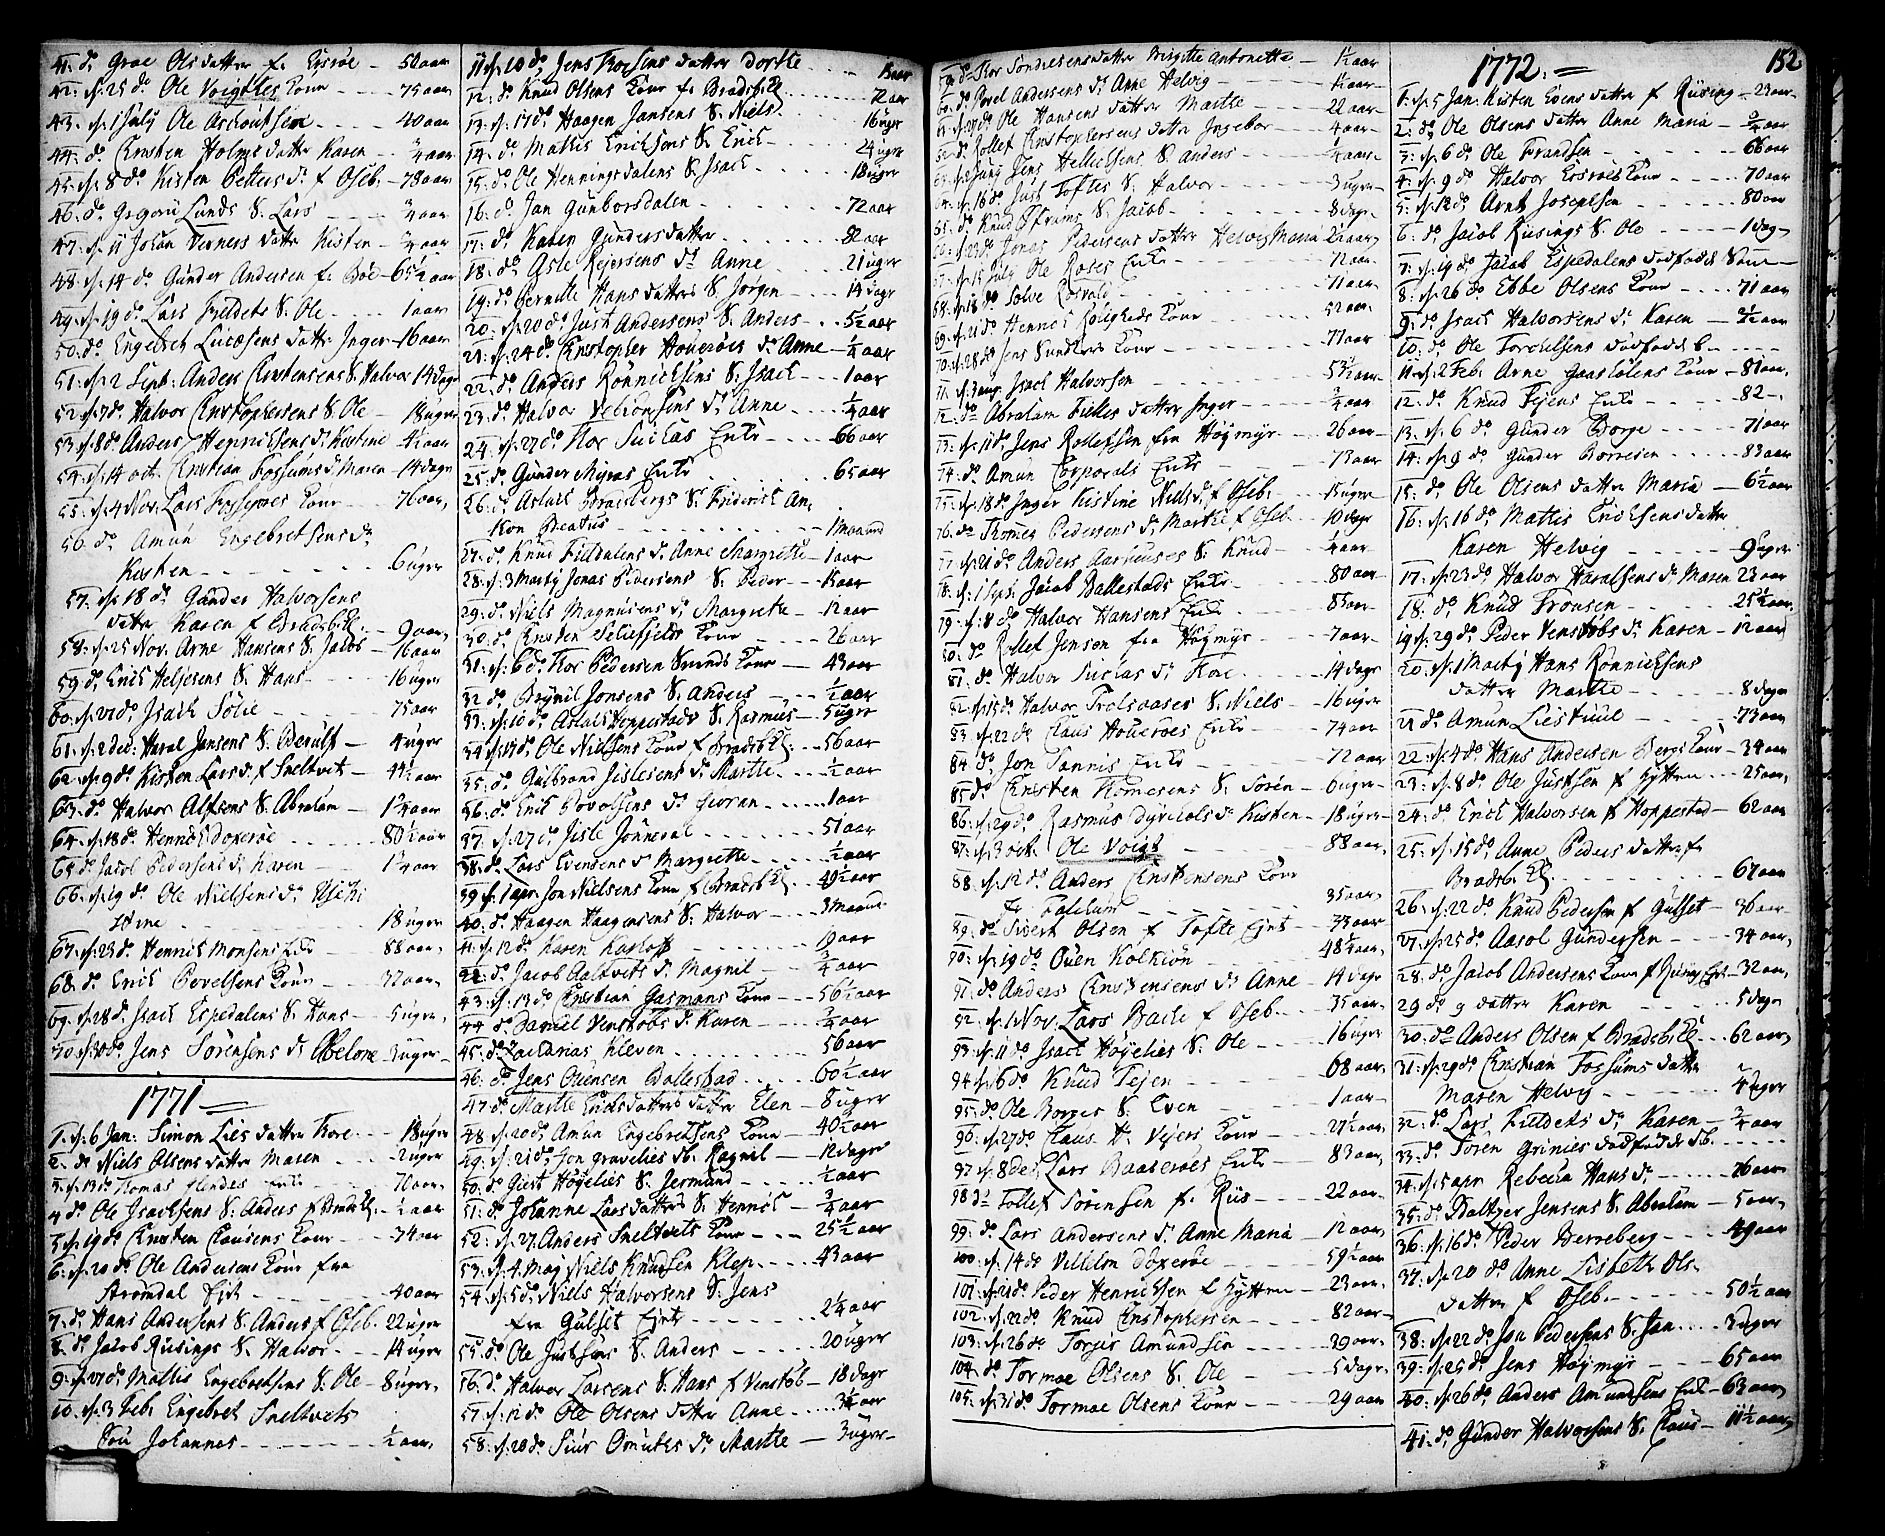 41. do Groe Olsdatter f. Eisröe — 50 aar
42. d. 25 do Ole Voigttes Kone — 75 aar
43. d. 1 July Ole Aslouksen — 40 aar
44. do Christen Holms datter Karen — ¾ aar
45. d. 8 do Kisten Petters D. f Oseb. — 78 aar
46. do Gregori Lunds S. Lars — ¾ aar
47. d. 11 Johan Verners datter Kisten — ¾ aar
48. d. 14 do Gunder Andersen f. Böe — 65½ aar
49. d. 19 do Lars Fieldets S. Ole — 1 aar
50. do Engebret Lucæsens datter Inger — 16 aar
51. d. 2 Sept: Anders Christensens S. Halvor 14 dage
52. d. 7 do Halvor Christophersens S. Ole — 18 uger
53. d. 8 do Anders Henrichsens d. Kistine 4½ aar
54. d. 14 oct. Christian Fossums d. Maren — 14 dage
55. d. 4 Nov. Lars Fossenes Kone — 76 aar
56. do Amun Engebretsens dr
Kisten — 6 uger
57. d. 18 do Gunder Halvorsens
datter Karen f Bradsb. Kl. — 9 aar
58. d. 25 Nov. Arne Hansens S. Jacob — 16 aar
59. do Erich Helgesens S. Hans — 16 uger
60. d. do Isach Solie — 75 aar
61. d. 2 dec: Haral Jansens S. Bernulf — 4 uger
62. d. 9 do Kisten Larsd. f Sneltvet — 44½ aar
63. do Halvor Alfsens S. Abraham — 1¼ aar
64. d. 18 do Henrich doxeröe — 80½ aar
65. do Jacob Pedersens d. Karen — 1¼ aar
66. d. 19 do Ole Nielsens dr
 — 18 uger
67. d. 23 do Henrich Monsens Enke — 88 aar
68. do Erich Povelsens Kone — 37 aar
69. d. 28 do Isach Espedalens S. Hans — 5 uger
70. d. 30 do Jens Sörensens d. Abelone — 3 uger
1771
1. d. 6 Jan: Simon Lies datter Tore — 18 uger
2. do Niels Olsens datter Maren — 2 uger
3. d. 13 do Tomas Enke — 70 aar
4. do Ole Isachsens S. Anders f Bradsb. Kl. — ½ aar
5. d. 19 do Christen Clausens Kone — 74 aar
6. d. 20 do Ole Andersens Kone fra
Strömdal Eje — 40 aar
7. do Hans Andersens S. Anders f Oseb. 22 uger
8. do Jacob Rusings S. Halvor — 14 uger
9. d. do Mattis Engebretsens S. Ole — 8 uger
10. d. 3 Feb. Engebret Sneltvets
Sön Johannes — ½ aar
11. d. 10 do Jens Torsens datter Dorte — aar
12. do Knud Olsens Kone f. Bradsb. Kl. — 72 aar
13. d. 17 do Haagen Jansens S. Niels — 16 uger
14. do Mattis Erichsens S. Erich — 24 uger
15. do Ole Henningsdalens S. Isach — 18 uger
16. do Jan Gunborsdalen — 72 aar
17. do Karen Gundersdatter — 82 aar
18. do Asle Rejersens dr Anne — 21 uger
19. do Bernette Hans datters S. Jörgen — 14 dage
20. d. 20 do Just Andersens S. Anders — 5½ aar
21. d. 24 do Christopher Houeröes dr Anne — ¼ aar
22. do Anders Rönnichsens S. Isach — 1 aar
23. do Halvor Vebionsens dr Anne — ¼ aar
24. d. 27 do Tor Suchas Enke — 66 aar
25. do Gunder Myras Enke — 65 aar
26. do Aslach Bradsbergs S. Friderich An-
ton Beatus — 1 maaned
27. do Knud Fieldalens d. Anne Margrette — 1 aar
28. d. 3 Marty Jonas Pedersens S. Peder — aar
29. do Niels Magnusens dr Margrette — 12 aar
30. do Christen Kone — 26 aar
31. d. 6 do Tor Pedersen Smeds Kone — 43 aar
32. do Brynil Jonsens S. Anders — ½ aar
33. d. 10 do Aslach Hoppestads S. Rasmus — 5 uger
34. d. 14 do Ole Nielsens Kone f Bradsb. Kl. — 56 aar
35. do Gulbrand Gislesens d. Marthe — ½ aar
36. do Erich Povelsens dr Gioran — 1 aar
37. d. 27 do Gisle Jönnevald — 51 aar
38. do Lars Evensens d Margrette — ½ aar
39. d. 1 apr. Jon Nielsens Kone f Bradsb. Kl. — 49½ aar
40. do Haagen Haagensens S. Halvor — 3 maaned
41. d. 12 do Karen — 19 aar
42. do Jacob Aaltvets d. Magnil — ¾ aar
43. d. 13 do Christian Gasmans Kone — 56½ aar
44. do Daniel Venstöbs d. Karen — ¾ aar
45. do Zacharias Kleven — 56 aar
46. do Jens Ouensen Ballestad — 60½ aar
47. do Marthe Erichsdatters datter Elen — 8 uger
48. d. 20 do Amun Engebretsens Kone — 40½ aar
49. d. 21 do Jon gravelies db. Ragnil — 12 dage
50. do Giert Höyelies S. Jermund — ½ aar
51. do Johanne Larsdatters S. Henrich — ¾ aar
52. d. 27. Anders Sneltvets Kone — 25½ aar
53. d. 4. May Niels Knudsen Klep — 43 aar
54. d. 5 do Niels Halvorsens S. Jens
fra Gulset Ejet — 2¼ aar
55. do Ole Justsens S. Anders — 20 uger
56. do Halvor Larsens S. Hans f Venstöb — 18 dage
57. d. 12 do Ole Olsens datter Anne — 3¼ aar
58. d. 20 do Siur Omholts dr Marthe — 3 uger
59. do Tor Sondresens datter Brigitte Antonette — 1½ aar
60. do Povel Andersens dr Anne Helvig — 1½ aar
61. d. do Ole Hansens datter Marthe — 22 aar
62. do Rollef Christophersens datter Ingebor — 4 aar
63. d. Juny Jens Hellichsens S. Anders — ¼ aar
64. d. 16 do Just Toftes S. Halvor — 3 uger
65. do Knud Strøms S. Jacob — 8 dage
66. d. 23 do Jonas Pedersens datter Helvig Maria 2½ aar
67. d. 14 July Ole Roses Enke — 72 aar
68. d. 18 do Solve Rosvald — 71 aar
69. d. 21 do Henrich Röligheds Kone — 52 aar
70. d. 28 do Jens Sundlers Kone — 77 aar
71. d. 3 aug. Isach Halvorsen — 53½ aar
72. do Abraham Fieldes datter Inger — ¾ aar
73. d. 11 do Jens Rollefsen fra Höymyr — 26 aar
74. do Amun Corporals Enke — 73 aar
75. d. 18 do Inger Kistine Nielsd. f Oseb. — 15 uger
76. do Thomes Pedersens d. Marthe f Oseb. — 10 dage
77. d. 21 do Anders Aarhuuses S. Knud — ¼ aar
78. d. 1 Sept. Jacob Ballestads Enke — 80 aar
79. d. 8 do Halvor Hansens Enke — 85 aar
80. do Rollef Jensen fra Höymyr — 7 aar
81. do Halvor Suchas dr Tore — 14 dage
82. d. 15 do Halvor Trolsaases S. Niels — 16 uger
83. d. 22 do Claus Houeröes Enke — 74 aar
84. do Jon Tannis Enke — 72 aar
85. do Christen Tomesens S. Sörén — 6 uger
86. d. 29 do Rasmus Dyrkols dr Kisten — 18 uger
87. d. 3 oct. Ole Voigt — 88 aar
88. d. 12 do Anders Christensens Kone
fr Falchum — 35 aar
89. do Siwert Olsen f Tofte Ejet — 33 aar
90. d. 19 do Ouen Kolkiön — 48½ aar
91. do Anders Christensens dr Anne — 14 dage
92. d. 1 Nov. Lars Bache f Oseb — 35 aar
93. d. 11 do Isach Höyelies S. Ole — 16 uger
94. d. 16 do Knud Tejen — 68 aar
95. do Ole Borges S. Even — 1 aar
96. d. 27 do Claus H. Vejers Kone — 27½ aar
97. d. 8 dec. Lars Baaseröes Enke — 83 aar
98. do Tollef Sörensen f. Riis — 22 aar
99. do Lars Andersens d. Anne Maria — 12 aar
100. d. 14 do Villelm doxeröe — 59½ aar
101. d. 21 do Peder Henrichsen f Hytten — 23 aar
102. d. 22 do Knud Christophersen — 82 aar
103. d. 26 do Torgir Amundsen — 39 aar
104. do Tormoe Olsens S. Ole — 5 dage
105. d. 31 do Tormoe Olsens Kone — 29 aar
1772.
152
1. d. 5 Jan. Kisten Evens datter f Rusing — 23 aar
2. do Ole Olsens datter Anne Maria — ¾ aar
3. d. 6 do Ole Frandsen — 66 aar
4. d. 9 do Halvor Eisröes Kone — 70 aar
5. d. 12 do Arnt Josephsen — 80 aar
6. do Jacob Rusings S. Ole — 1 dag
7. d. 19 do Jacob Espedalens dödfödde Barn
8. d. 26 do Ebbe Olsens Kone — 71 aar
9. do Isach Halvorsens dr Karen — 2½ aar
10. do Ole Torchelsens dödfödde b.
11. d. 2 Feb. Arne Kone — 81 aar
12. do Knud Tejens Enke — 82
13. d. 6 do Gunder Borge — 71 aar
14. d. 9 do Gunder Börresen — 83 aar
15. do Ole Olsens datter Maria — 6½ aar
16. d. 16 do Mattis Erichsens datter
Karen Helvig — 9 uger
17. d. 23 do Halvor Haralsens dr Maren 23 aar
18. do Knud Fronsen — 25½ aar
19. d. 29 do Peder Venstöbs dr Karen — 12 aar
20. d. 1 Marty Hans Rönnichsens
datter Marthe — 8 dage
21. do Amun Liestuul — 73 aar
22. d. 4 do Hans Andersen Bergs Kone — 34 aar
23. d. 8 do Ole Justsen f Hytten — 25 aar
24. do Erich Halvorsen f Hoppestad — 62 aar
25. d. 15 do Anne Peders datter f
Bradsb. Kl. — 67 aar
26. d. 22 do Knud Pedersen f Gulset — 36 aar
27. d. 25 do Aasol Gundersen — 34 aar
28. do Jacob Andersens Kone f Rusing Ejet — 32 aar
29. do 9 datter Karen — 5 dage
30. do Anders Olsen f Bradsb. Kl. — 62 aar
31. d. 29 do Christian Fossums datter
Maren Helvig — 4 uger
32. do Lars Fieldets dr Karen — ¾ aar
33. do Sören Grinies dödfödde db.
34. d. 5 apr. Rebecca Hans dr — 76 aar
35. do Baltzer Jensens S. Abraham — 5 aar
36. d. 16 do Peder Berreberg — 49 aar
37. d. 20 do Anne Lisbeth Ols-
datter f Oseb. — 50½ aar
38. d. 22 do Jon Pedersens S. Jan — 3 uger
39. d. 25 do Jens Höymyr — 65 aar
40. d. 26 do Anders Amundsens Enke — 63 aar
41. do Gunder Halvorsens S. Claus — 11½ aar